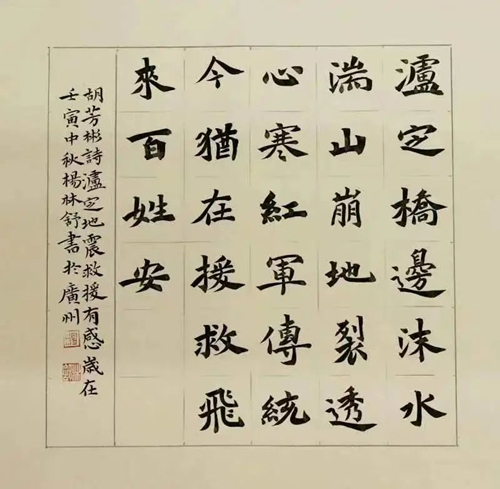 瀘定橋邊沫水
湍山崩地裂透
心寒紅軍傳統
今猶在援救飛
來百姓安
胡芳彬詩瀘定地震救援有感歲在
壬寅中秋楊林舒書於廣州